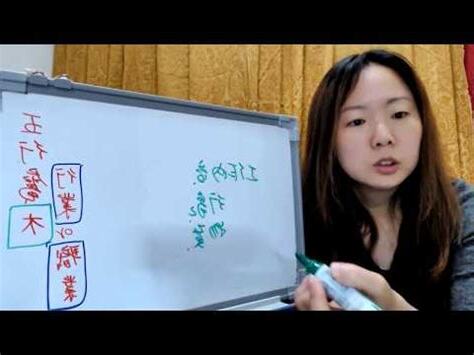 五行屬木
行業 or 職業
工作內容
行
物